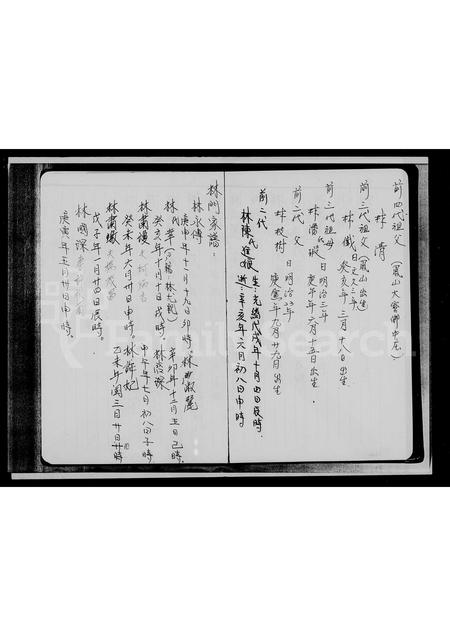 前四代祖父(鳳山大寮鄉中庄)
林 清
前三代祖父(鳳山出生)
林 戲 日文久三年 癸亥年 三月十八日出生
前三代祖母 日明治三年
林潘氏 庚午年六月十五日出生
前二代父 日明治23年
林枝樹 庚寅年九月廿九日出生
前二代
林陳氏進娘 生:光緒戊戌年十月四日辰時.
逝:辛亥年六月初八日申時
林門家譜:
林永傳 林 淑麗
庚申年十一月十九日卯時. 辛卯年十二月五日己時.
林氏草(台籍:林尤親)
癸亥年十月十日戌時 林
林肅優 甲午年七月初八日子時
癸未年六月廿日申時. 林許妃
林肅 乙未年閏三月廿日
戊子年一月廿四日辰時.
林國深
庚寅年五月廿日申時.
FamilySearch